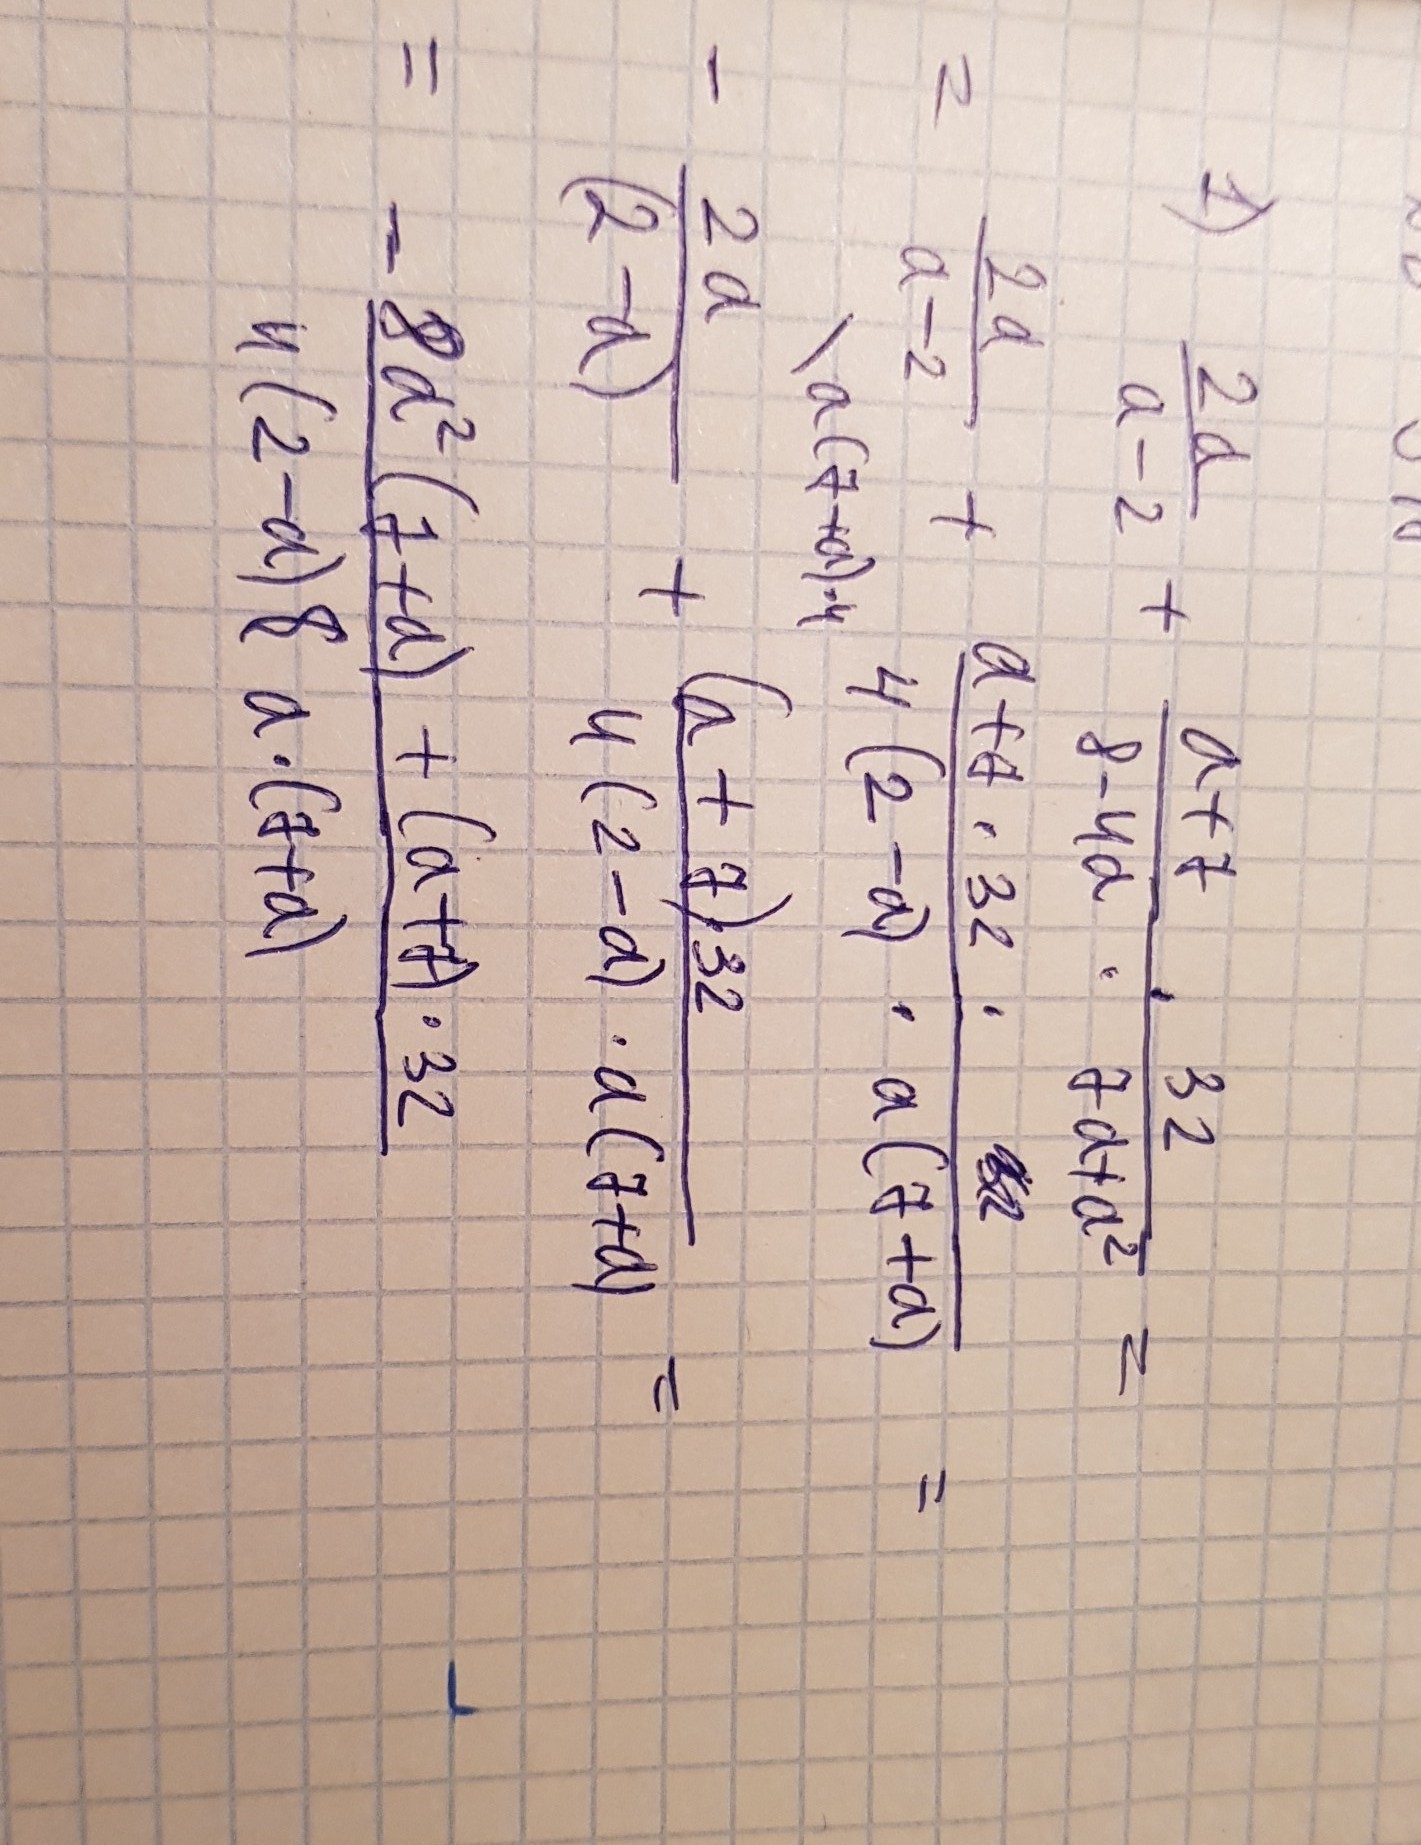 1) 2a/(a-2) + (a+7)/(8-4a) · 32/(7a+a²) =
= 2a/(a-2) + (a+7 · 32 ·)/(4(2-a) · a(7+a)) =
\a(7+a)·4
- 2a/(2-a) + (a+7)·32/(4(2-a) · a(7+a)) =
= - (8a²(7+a) + (a+7)·32)/(4(2-a)8 a·(7+a))